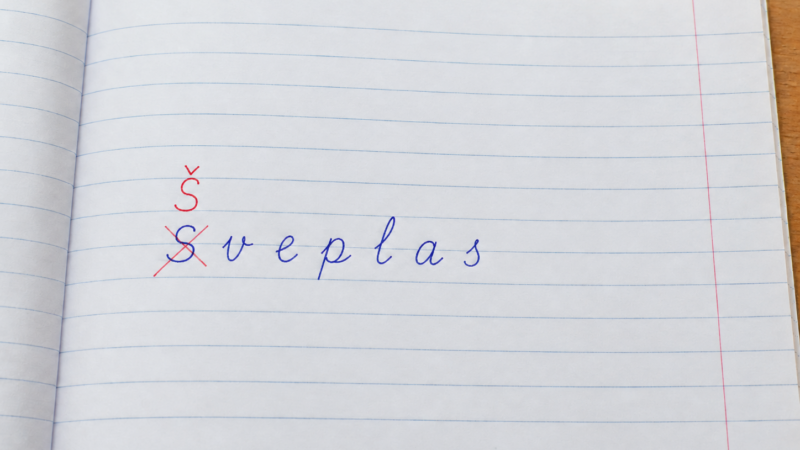 Š
S v e p l a s